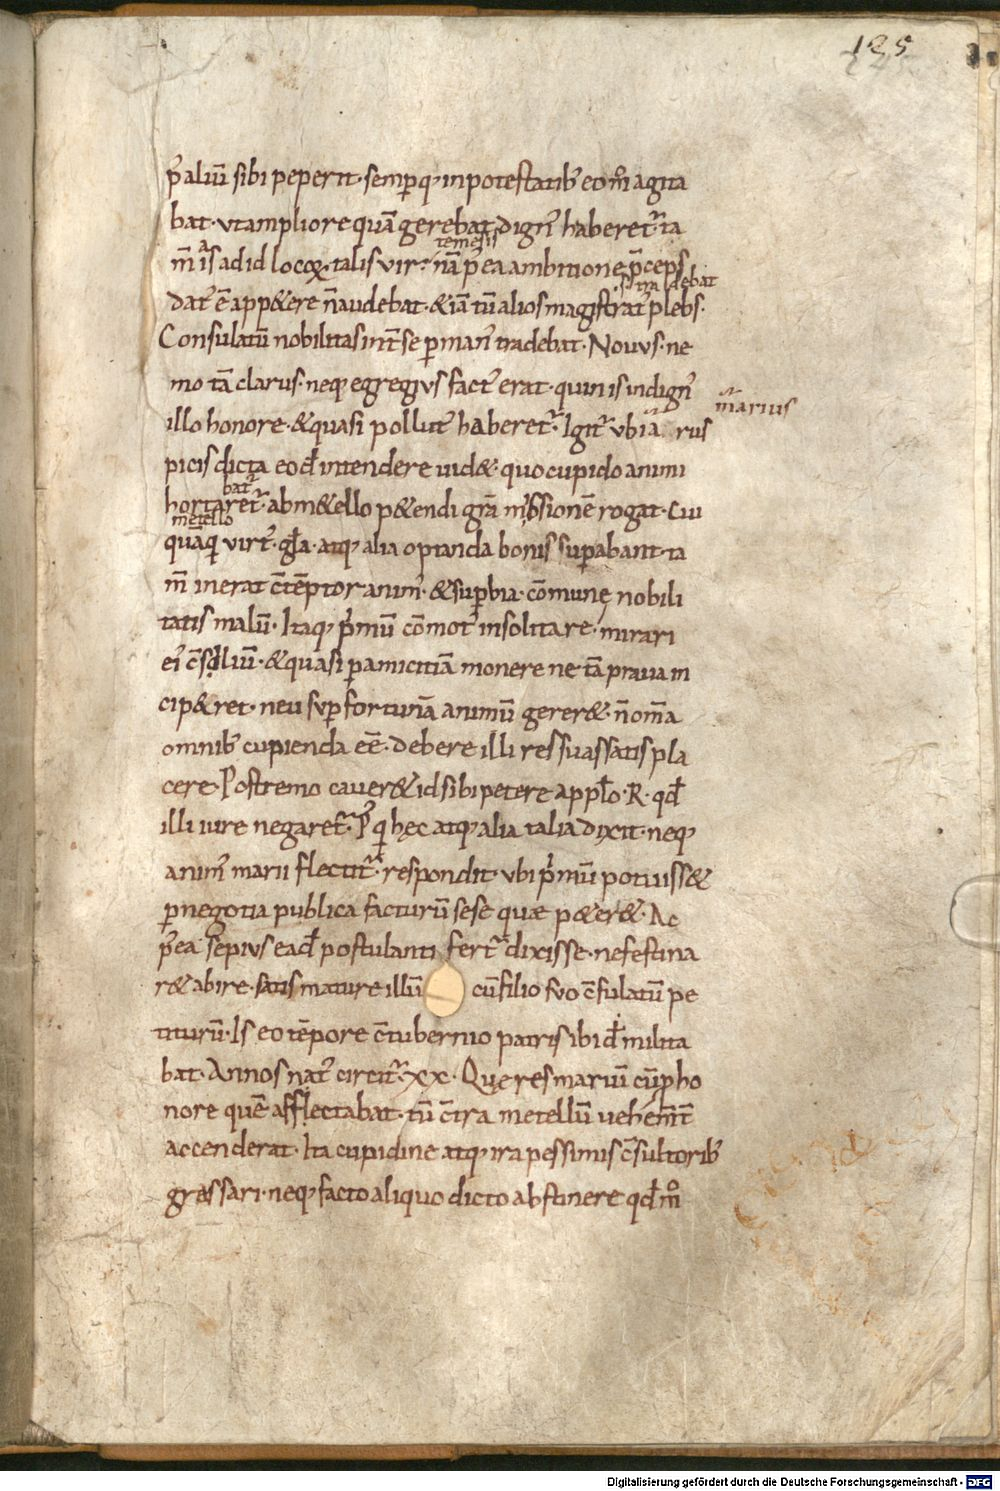 125
p̄ aliū sibi peperit· semp̱q; in potestatib; eom̊ agita
bat· ut ampliore quā gerebat dign᷒ haberet᷑· ta
m̄ is ad id locoꝝ talis vir· nā p᷒ea ambitione p̄ceps
temeris
dat᷒ ē app&ere n̄ audebat· &iā tū alios magistrat᷒ plebs·
tradebat
Consulatū nobilitas int̄ se p̱ man᷒ tradebat· Novvs· ne
mo tā clarus· neq; egregivs fact᷒ erat· quin is indign᷒
illo honore· & quasi pollut᷒ haberet᷑· Igit᷑ vbi a rus
marius
picis dicta eod̄ intendere uid&· quo cupido animi
hortaret᷑· ab m&ello p&endi grā missionē rogat· Cui
bat᷑
metello
quāq̄ virt᷒· gl̄a· atq; alia optanda bonis sup̱abant· ta
m̄ inerat c̄tēptor anim᷒· & sup̱bia· cōmune nobili
tatis malū· Itaq; p̄mū cōmot᷒ insolita re· mirari
ei᷒ c̄siliū· & quasi p̱ amicitiā monere ne tā praua in
cip&ret· neu sup̱ fortunā animū gerer&· n̄ om̄a
omnib; cupienda eē· debere illi res sua ssatis pla
cere· Postremo caver& id sibi petere a ppl̄o· R· qd̄
illi iure negaret᷑· P᷒q̄ hęc atq; alia talia dixit· neq;
anim᷒ marii flectit᷑· respondit· vbi p̄mū potuiss&
p̱ negotia publica facturū sese quae p&er&· Ac
p᷒ea sepivs ead̄ postulanti fert᷑ dixisse· ne festina
r& abire· satis mature illū cū filio svo c̄sulatū pe
titurū· Is eo tēpore c̄tubernio patris ibid̄ milita
bat· Annos nat᷒ circit᷑ xx· Quę res mariū cū p̱ ho
nore quē afflectabat· tū c̄tra metellū vehem̄t̄
accenderat· Ita cupidine atq; ira pessimis c̄sultorib;
grassari· neq; facto aliquo dicto abstinere qd̄ m̊
Digitalisierung gefördert durch die Deutsche Forschungsgemeinschaft - DFG